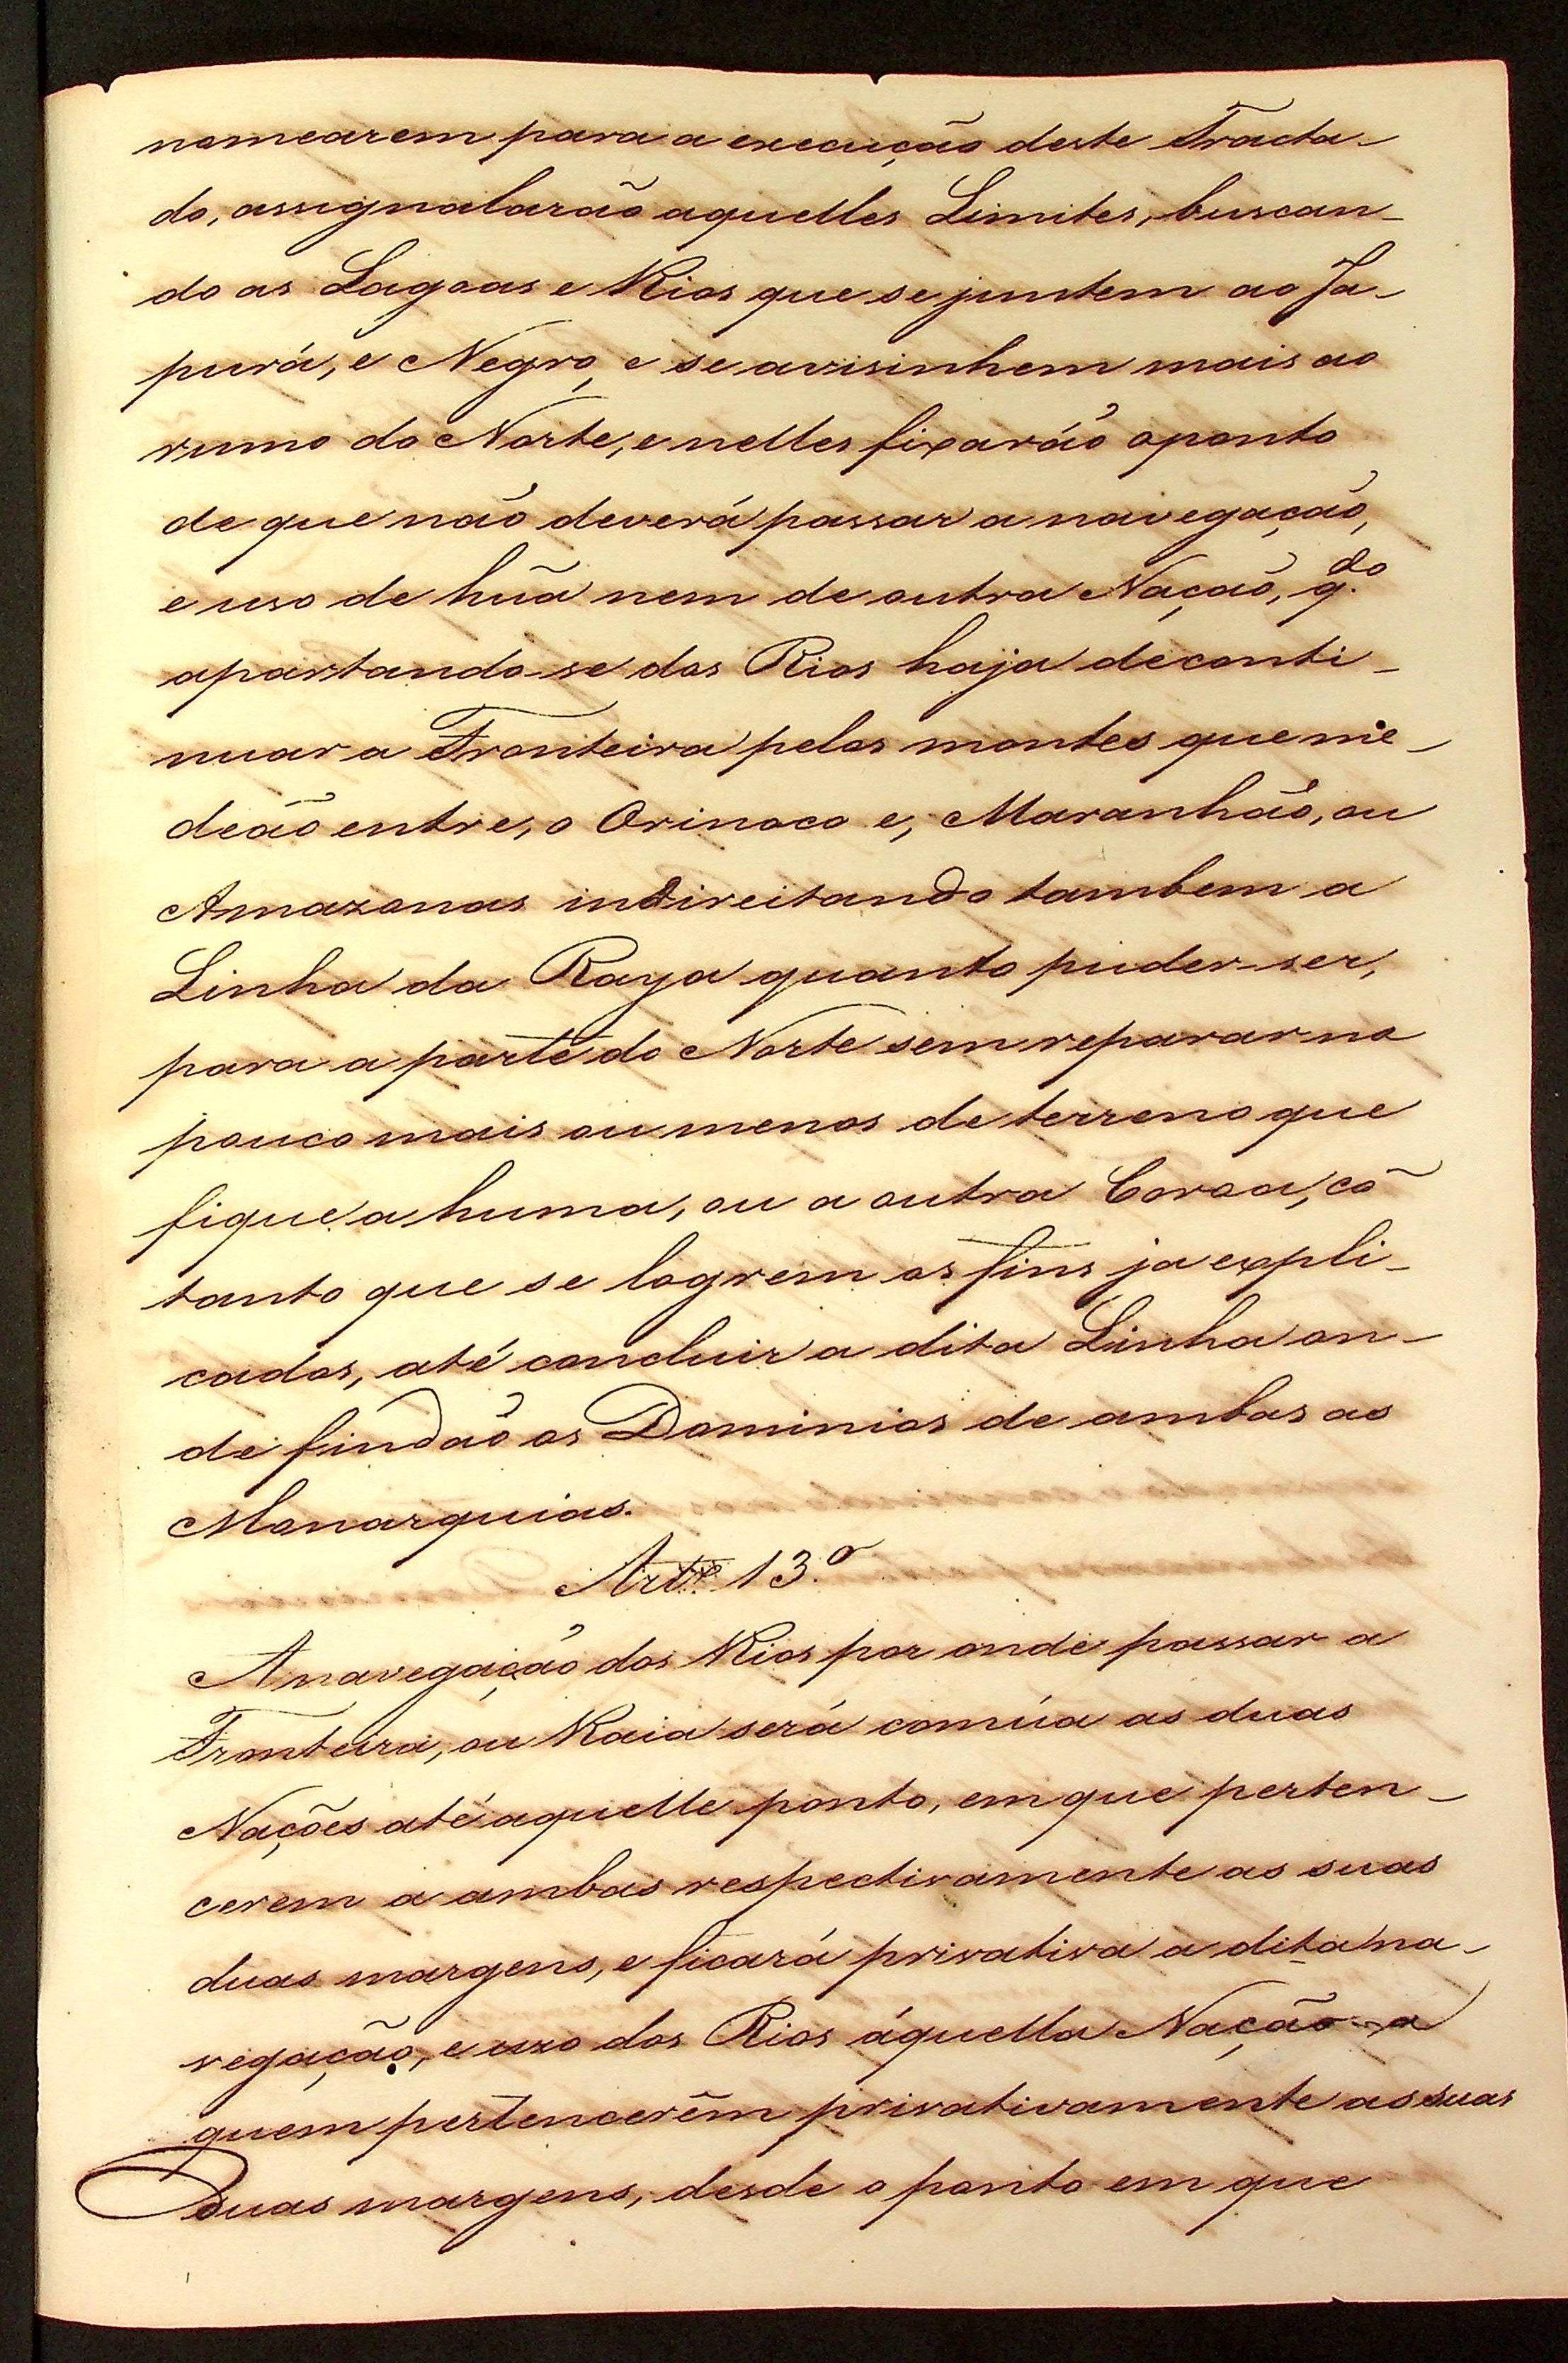 nomearem para a execução deste Tracta-
do, assignalarão aquelles Limites, buscan-
do as Lagoas e Rios que se juntem ao Ja-
purá, e Negro, e se avisinhem mais ao
rumo do Norte, e nelles fixaráõ o ponto
de que não deverá passar a navegação,
e uso de hũa nem de outra Nação, q.do
apartando-se dos Rios haja de conti-
nuar a Fronteira pelos montes que me-
deão entre, o Orinoco e, Maranhão, ou
Amazonas indireitando tambem a
Linha da Raya quanto puder ser,
para a parte do Norte sem reparar no
pouco mais ou menos de terreno que
fique a huma, ou a outra Coroa, cõ
tanto que se logrem os fins ja expli-
cados, até concluir a dita Linha on-
de findão os Dominios de ambas as
Monarquias.
Art.º 13.º
A navegação dos Rios por onde passar a
Fronteira, ou Raia será comúa as duas
Nações até aquelle ponto, em que perten-
cerem a ambas respectivamente as suas
duas margens, e ficará privativa a dita na-
vegação, e uzo dos Rios áquella Nação a
quem pertencerêm privativamente as suas
duas margens, desde o ponto em que